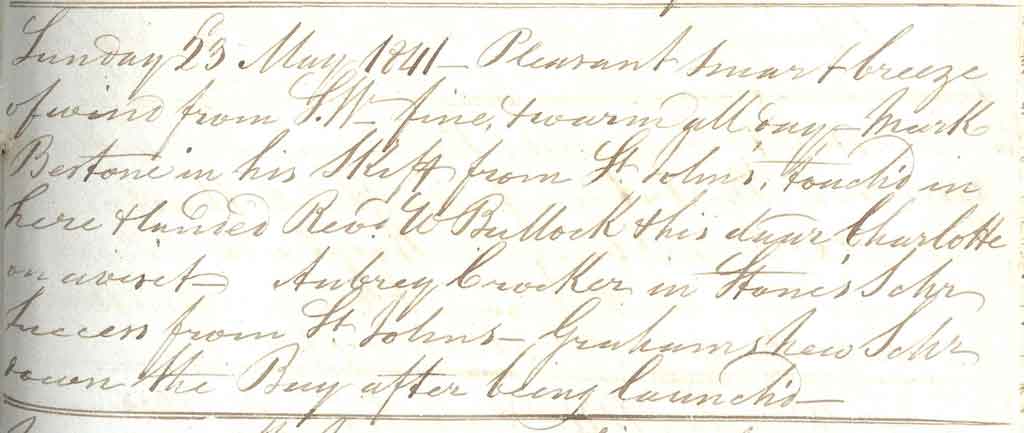 Sunday 23 May 1841 - Pleasant smart breeze
of wind from S.W - fine, & warm all day - Mark
Bestone in his Skiff from St Johns, touch'd in
here & landed Revd. W Bullock & his daur Charlotte
on a viset - Aubrey Crocker in Stone's Schr
Success from St Johns - Grahams new Schr
down the Bay after being launch'd -